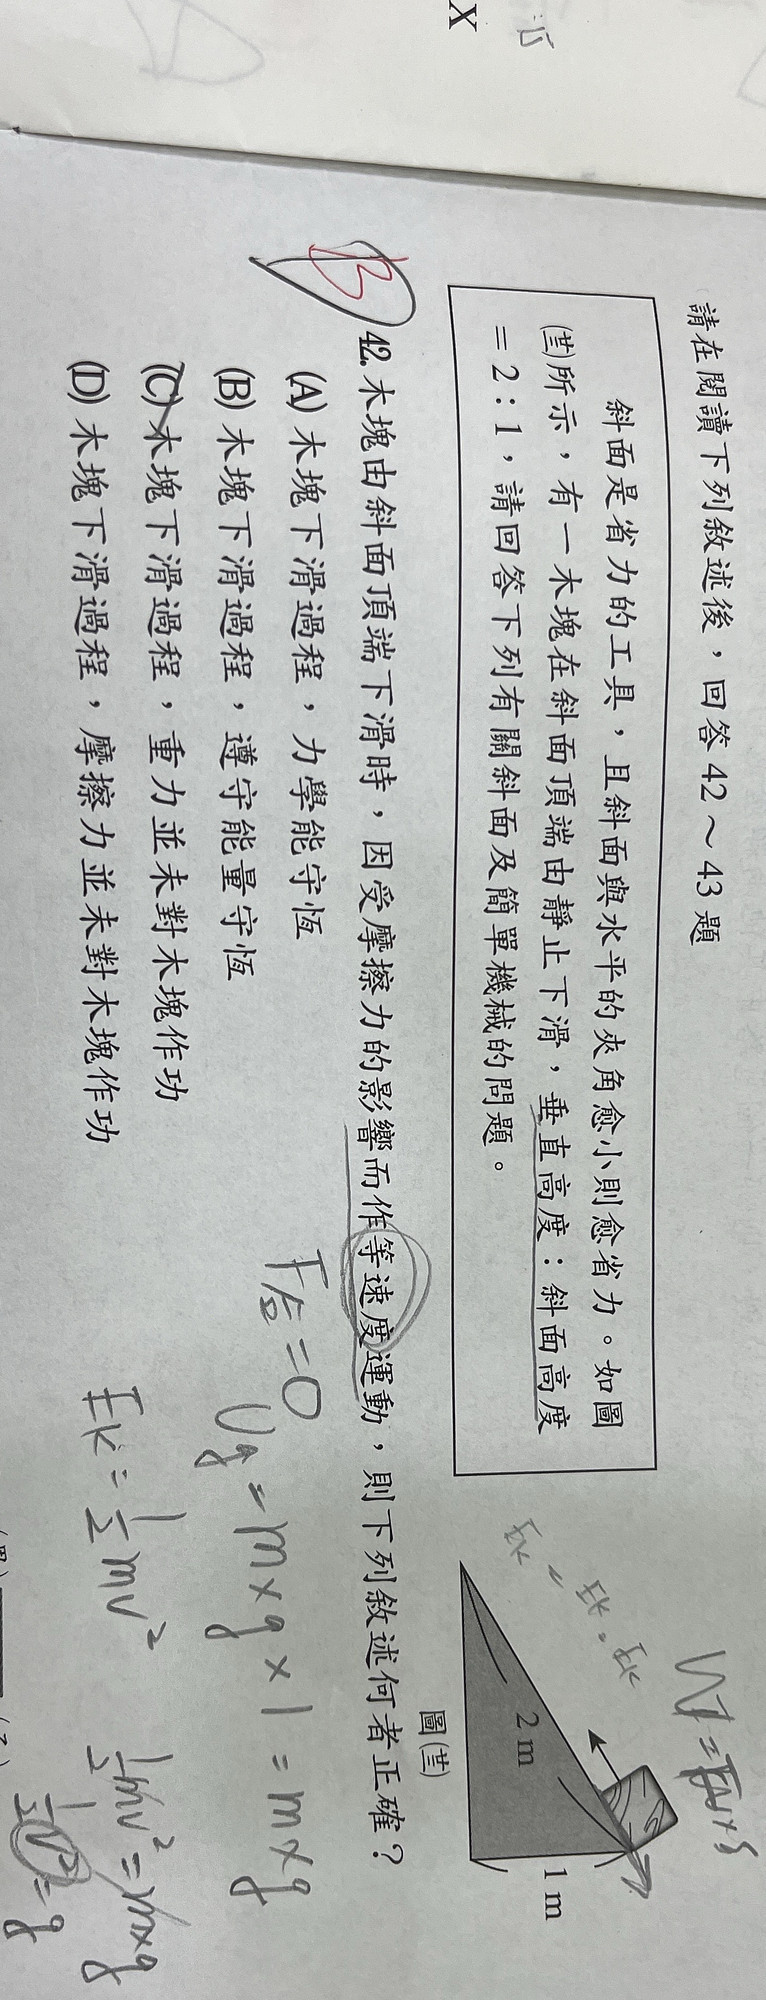 X
請在閱讀下列敘述後，回答42～43題
斜面是省力的工具，且斜面與水平的夾角愈小則愈省力。如圖
(卌)所示，有一木塊在斜面頂端由靜止下滑，垂直高度：斜面高度
＝2：1，請回答下列有關斜面及簡單機械的問題。
2 m
1 m
圖(卌)
B
42. 木塊由斜面頂端下滑時，因受摩擦力的影響而作等速度運動，則下列敘述何者正確？
(A) 木塊下滑過程，力學能守恆
(B) 木塊下滑過程，遵守能量守恆
(C) 木塊下滑過程，重力並未對木塊作功
(D) 木塊下滑過程，摩擦力並未對木塊作功
F合=0
Ug=m×g×1=m×g
Ek=½mv²
½mv²=m×g
½v²=g